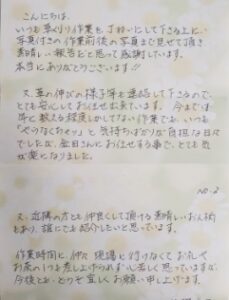 こんにちは。
いつも草刈り作業を丁ねいにして下さる上に、
写真付きの作業前後の写真まで見せて頂き
素晴しい報告だと思って感謝しています。
本当にありがとうございます!!
又、草の伸びの様子等も連絡して下さるので、
とても安心してお任せ出来ています。今までは
年に数える程度しかしてない作業でも、いつも
“やらなくちゃッ”と気持ちばかりが負担な日々
でしたが、金田さんにお任せする事で、とても気
が楽になりました。
NO.2
又、近隣の方とも仲良くして頂ける素晴しいお人柄
もあり、誰にでも紹介したいと思っています。
作業時間に、仲々現場に行けなくてお礼や
お茶の1つも差し上げられず心苦しく思っていますが、
今後とも、どうぞ宜しくお願い申し上げます。